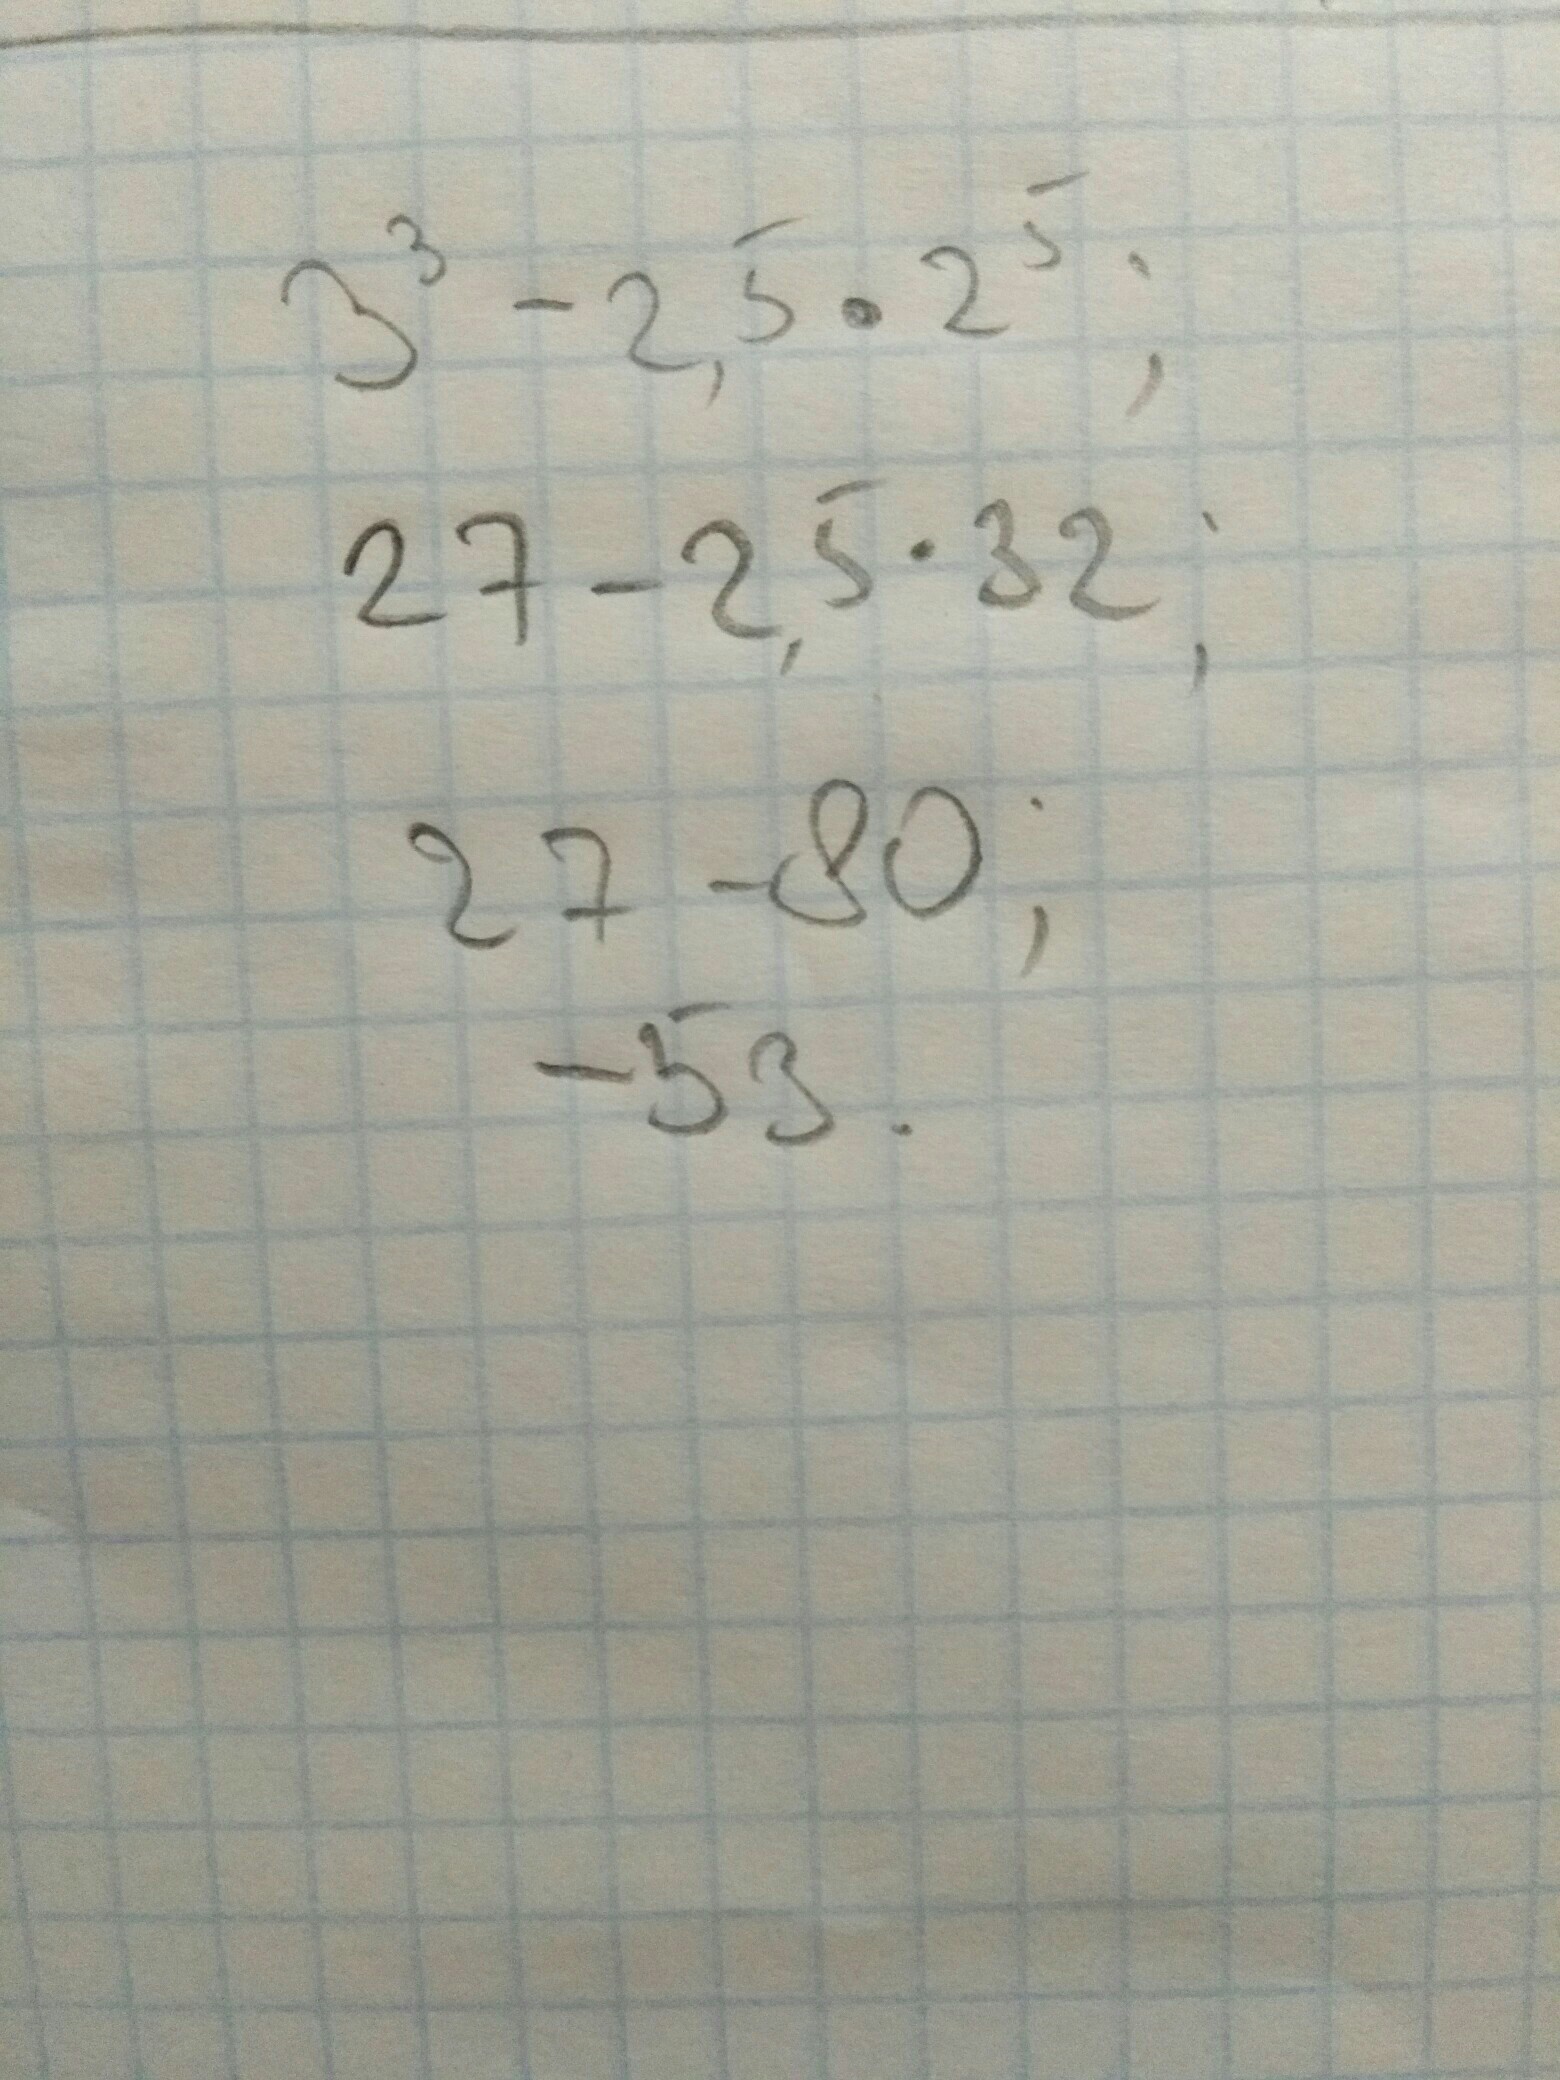 3³ - 2,5 • 2⁵;
27 - 2,5 · 32;
27 - 80;
-53.